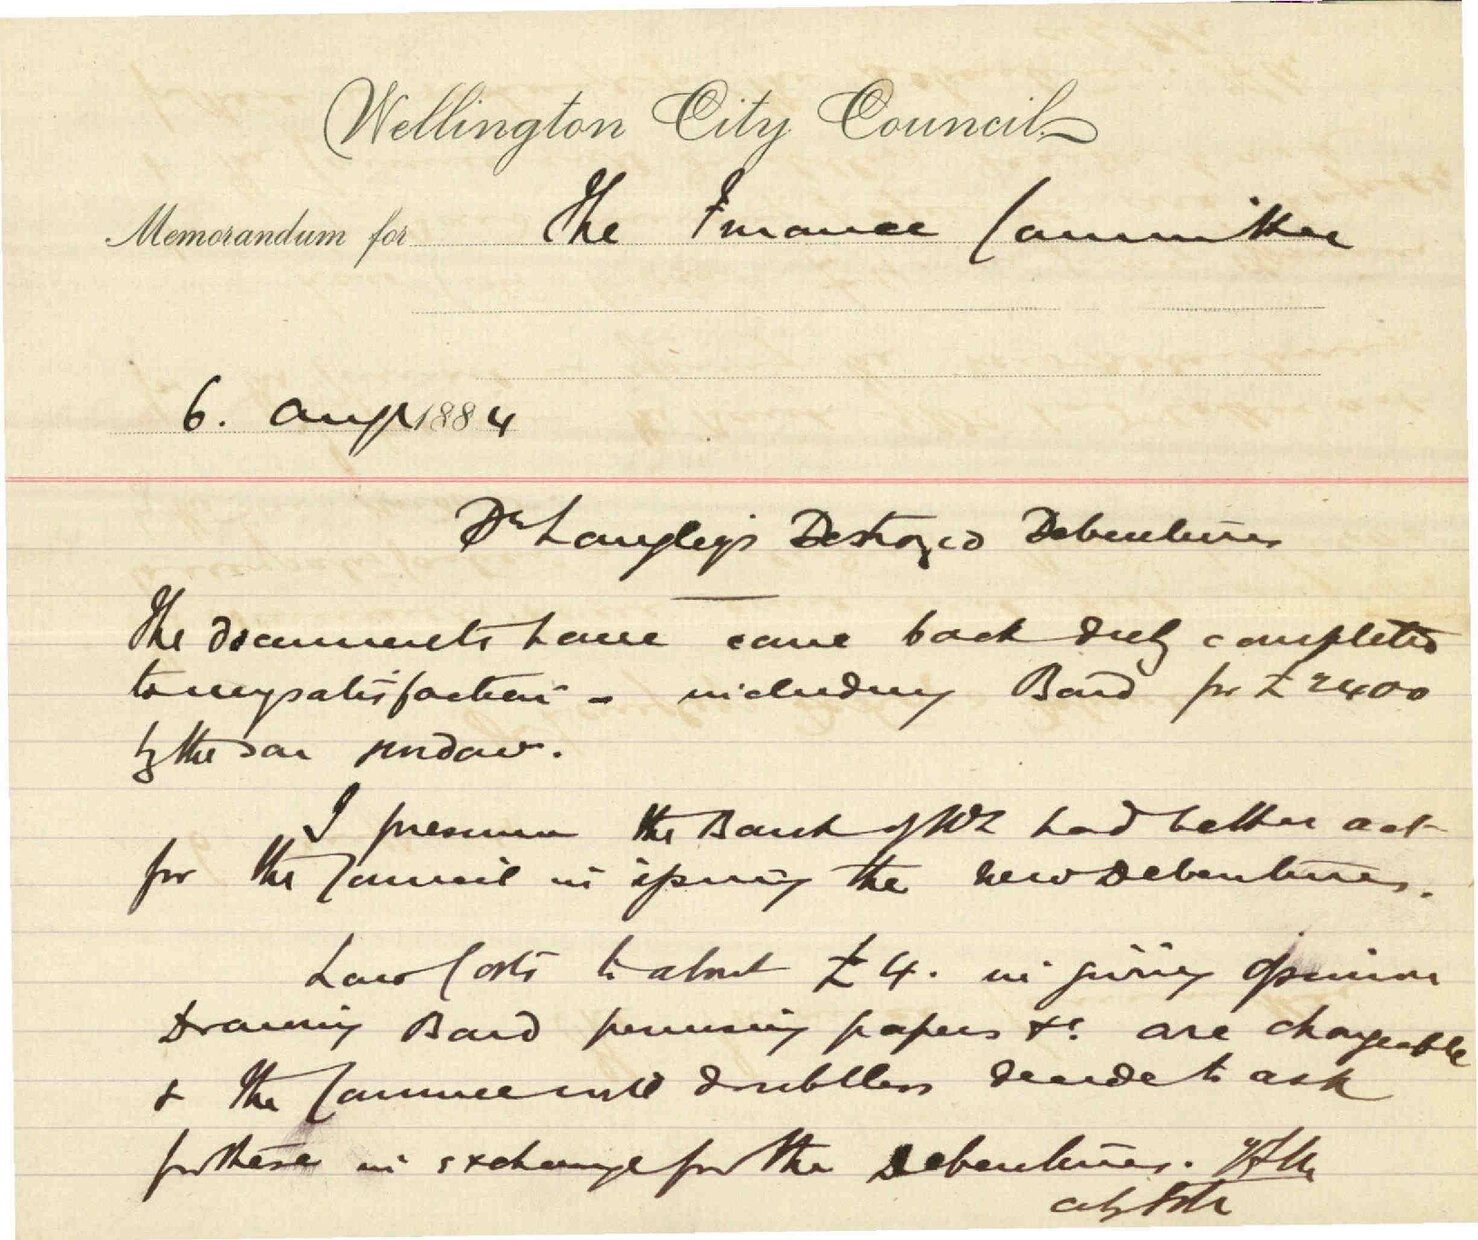 Wellington City Council
Memorandum for The Finance Committee
6. Augt 1884
Dr Langley's Destroyed Debentures
The documents have come back duly completed
to my satisfaction - including Bond for £2400
by the
I presume the Bank of NZ had better act
for the Council in issuing the new Debentures.
Law Costs to about £4. in giving opinion
drawing Bond perusing papers &c. are chargeable
& the Council will doubtless decide to ask
for these in exchange for the Debentures.